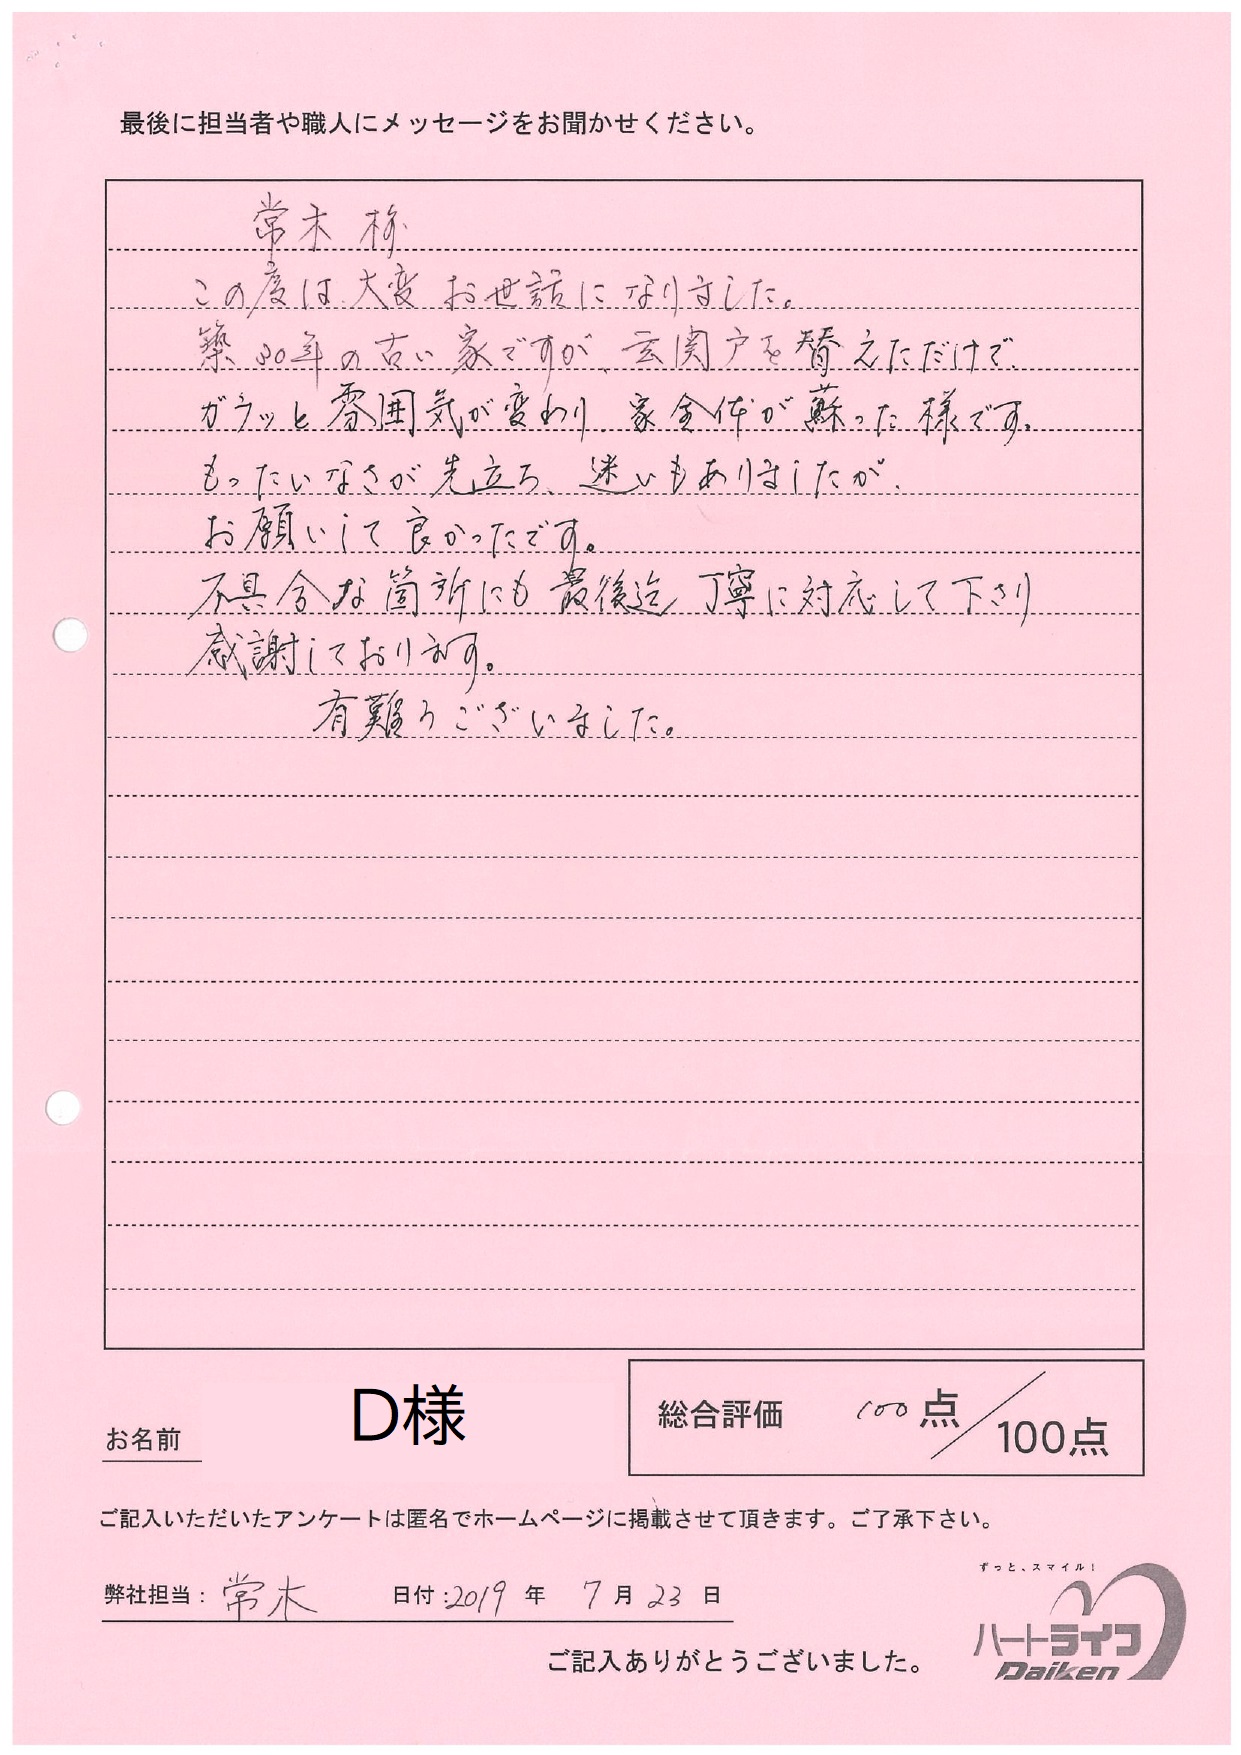 最後に担当者や職人にメッセージをお聞かせください。
常木 様
この度は、大変お世話になりました。
築30年の古い家ですが、玄関戸を替えただけで、
ガラッと雰囲気が変わり、家全体が蘇った様です。
もったいなさが先立ち、迷いもありましたが、
お願いして良かったです。
不具合な箇所にも最後迄丁寧に対応して下さり
感謝しております。
有難うございました。
お名前 D様
総合評価 100点/100点
ご記入いただいたアンケートは匿名でホームページに掲載させて頂きます。ご了承下さい。
弊社担当：常木 日付：2019年 7月23日
ずっと、スマイル！
ハートライフ
Daiken
ご記入ありがとうございました。